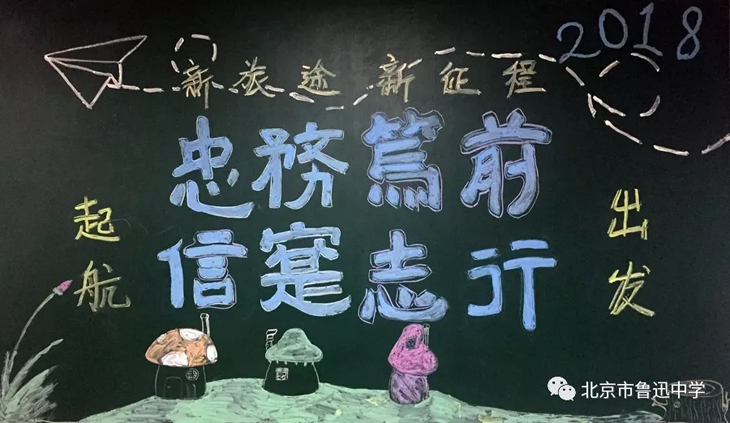 2018
新旅途 新征程
忠務篤前
信寔志行
起航
出发
北京市鲁迅中学